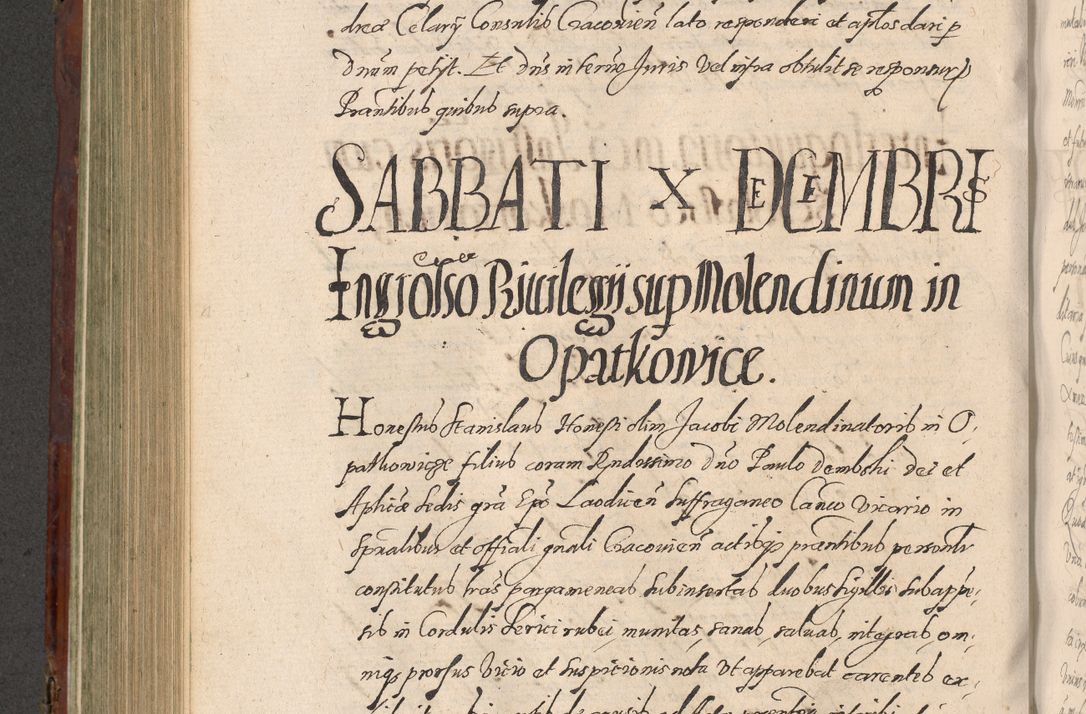 dreæ Celarÿ Consulis Cracovień lato responderi et aptos dari p
Dnum petijt. Et dns in terno Juris Vel infra obtulit se responsurũ
Prantibus quibus supra.
SABBATI X DECEMBRIS
Ingrosso Privilegij sup Molendinum in
Opatkowice.
Honestus Stanislaus Honesti olim Jacobi Molendinatoris in O,
patkowicze filius coram Rndissimo dno Paulo Dembski dei et
Aplicæ Sedis gra Epo Laodiceń Suffraganeo Canco Vicario in
Spralibus et officiali gnali Cracovień actibq prantibus personlr
constitutus lras pargameneas subinsertas duobus sigillis subappe,
sis in Cordulis serici rubei, munitas, sanas, saluas, integras, om,
niq prorsus Vitio et suspitionis nota Vt apparebat carentes ex,